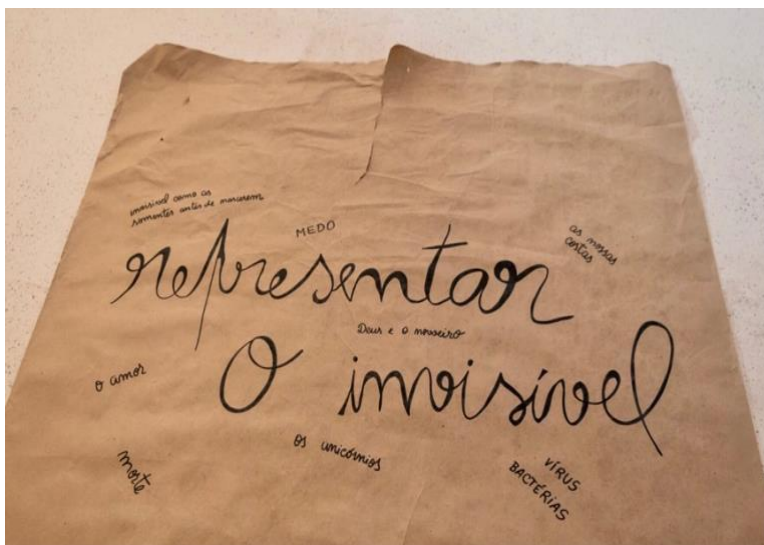 invisível como as
sementes antes de nascerem
MEDO
as nossas
costas
representar
Deus e o nevoeiro
o invisível
o amor
os unicórnios
morte
VÍRUS
BACTÉRIAS